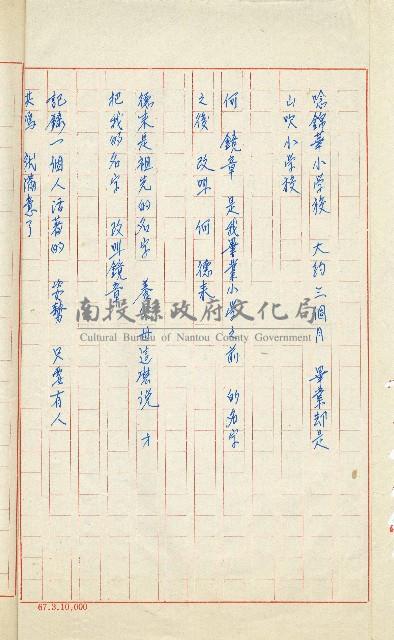 唸錦華小学校 大約三個月 畢業却是
山吹小学校
何 鏡章 是我畢業小學之前 的名字
之後 改叫 何 德来
德来是祖先的名字 養父這麽说 才
把我的名字 改叫鏡章
記錄一個人活着的 姿勢 只要有人
就滿意了
南投縣政府文化局
Cultural Bureau of Nantou County Government
67.3.10,000